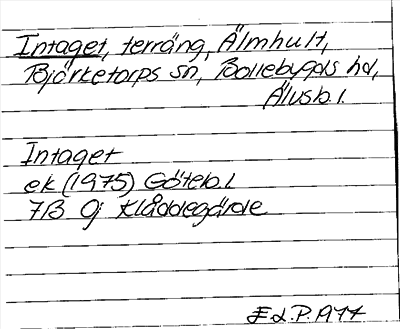 Intaget, terräng, Älmhult,
Björketorps sn, Bollebygds hd,
Älvsb. l.
Intaget
ek (1975) Göteb. l
7B 0j Klåddegärde
1977